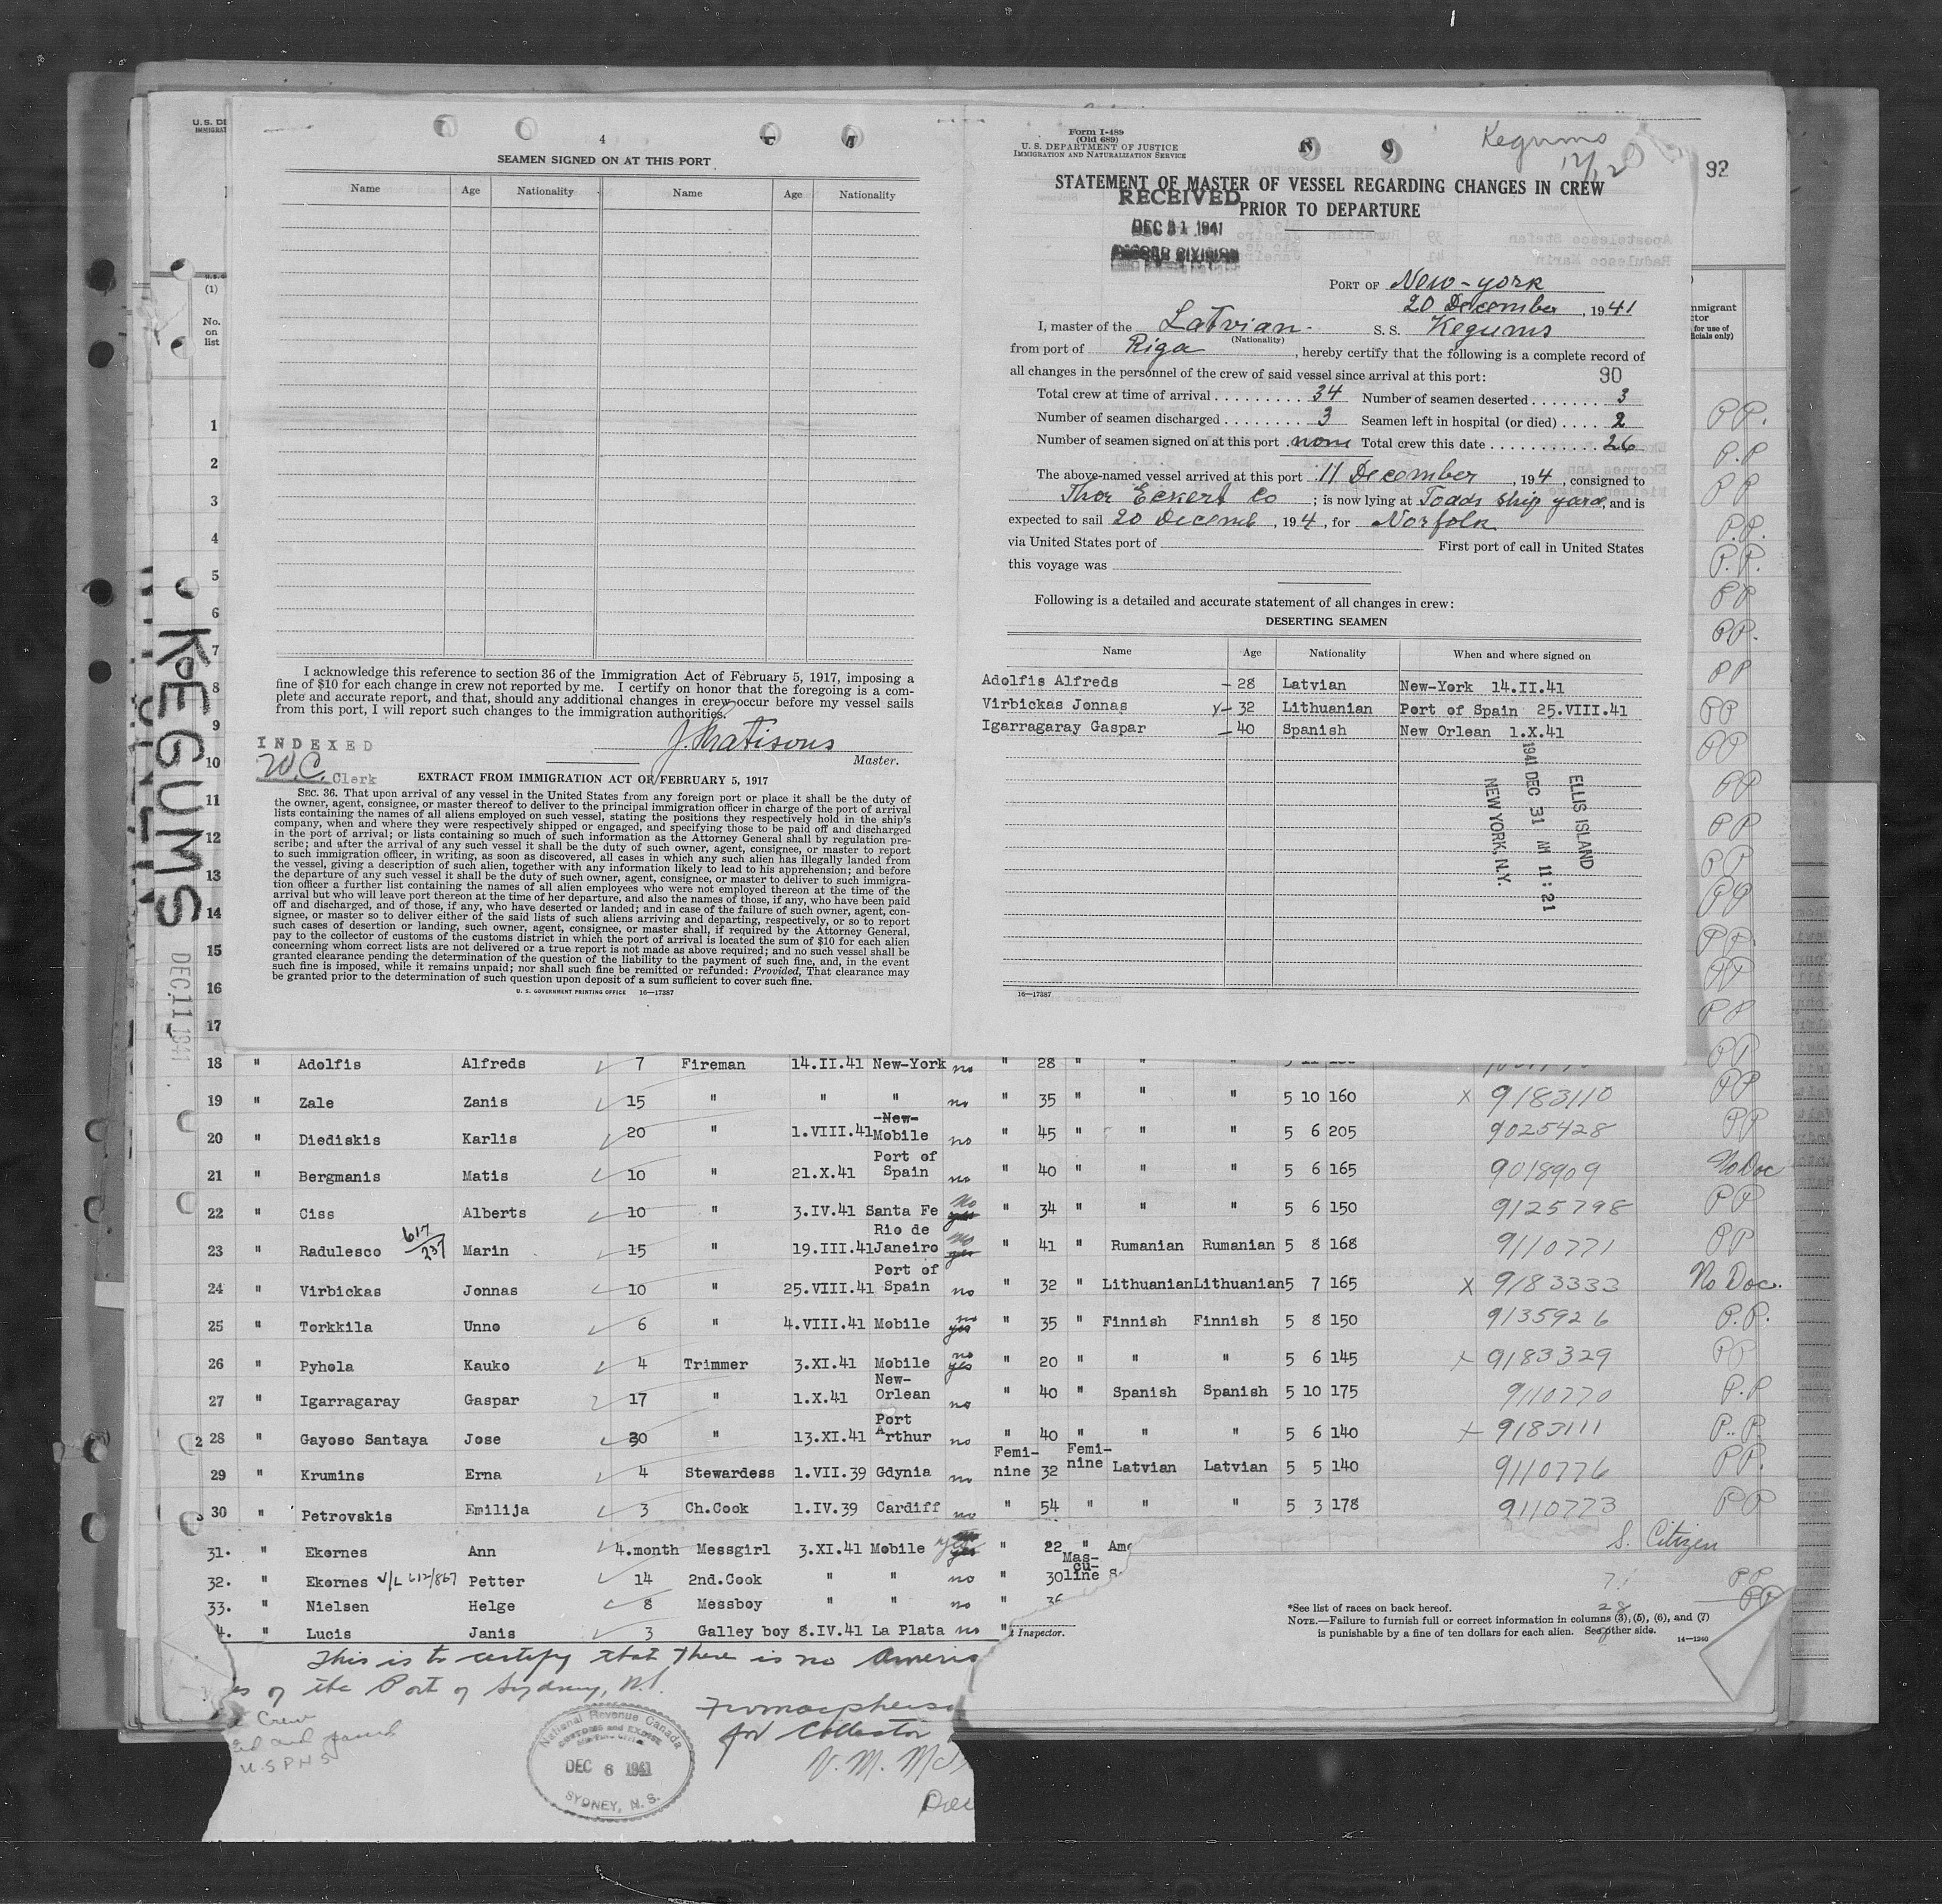 4
SEAMEN SIGNED ON AT THIS PORT
Name Age Nationality Name Age Nationality
I acknowledge this reference to section 36 of the Immigration Act of February 5, 1917, imposing a
fine of $10 for each change in crew not reported by me. I certify on honor that the foregoing is a com-
plete and accurate report, and that, should any additional changes in crew occur before my vessel sails
from this port, I will report such changes to the immigration authorities.
INDEXED
W.C. Clerk
Master.
EXTRACT FROM IMMIGRATION ACT OF FEBRUARY 5, 1917
SEC. 36. That upon arrival of any vessel in the United States from any foreign port or place it shall be the duty of
the owner, agent, consignee, or master thereof to deliver to the principal immigration officer in charge of the port of arrival
lists containing the names of all aliens employed on such vessel, stating the positions they respectively hold in the ship's
company, when and where they were respectively shipped or engaged, and specifying those to be paid off and discharged
in the port of arrival; or lists containing so much of such information as the Attorney General shall by regulation pre-
scribe; and after the arrival of any such vessel it shall be the duty of such owner, agent, consignee, or master to report
to such immigration officer, in writing, as soon as discovered, all cases in which any such alien has illegally landed from
the vessel, giving a description of such alien, together with any information likely to lead to his apprehension; and before
the departure of any such vessel it shall be the duty of such owner, agent, consignee, or master to deliver to such immigra-
tion officer a further list containing the names of all alien employees who were not employed thereon at the time of the
arrival but who will leave port thereon at the time of her departure, and also the names of those, if any, who have been paid
off and discharged, and of those, if any, who have deserted or landed; and in case of the failure of such owner, agent, con-
signee, or master so to deliver either of the said lists of such aliens arriving and departing, respectively, or so to report
such cases of desertion or landing, such owner, agent, consignee, or master shall, if required by the Attorney General,
pay to the collector of customs of the customs district in which the port of arrival is located the sum of $10 for each alien
concerning whom correct lists are not delivered or a true report is not made as above required; and no such vessel shall be
granted clearance pending the determination of the question of the liability to the payment of such fine, and, in the event
such fine is imposed, while it remains unpaid; nor shall such fine be remitted or refunded: Provided, That clearance may
be granted prior to the determination of such question upon deposit of a sum sufficient to cover such fine.
U. S. GOVERNMENT PRINTING OFFICE 16—17387
Form I-489
(Old 689)
U. S. DEPARTMENT OF JUSTICE
IMMIGRATION AND NATURALIZATION SERVICE
Kegums
12/20
92
STATEMENT OF MASTER OF VESSEL REGARDING CHANGES IN CREW
PRIOR TO DEPARTURE
RECEIVED
DEC 31 1941
PORT OF New-york
20 December, 1941
I, master of the Latvian S. S. Kegums
(Nationality)
from port of Riga, hereby certify that the following is a complete record of
all changes in the personnel of the crew of said vessel since arrival at this port: 90
Total crew at time of arrival 34 Number of seamen deserted 3
Number of seamen discharged 3 Seamen left in hospital (or died) 2
Number of seamen signed on at this port none Total crew this date 26
The above-named vessel arrived at this port 11 December, 194, consigned to
Thor Eckert Co; is now lying at Toads ship yard, and is
expected to sail 20 Decemb, 194, for Norfolk
via United States port of First port of call in United States
this voyage was
Following is a detailed and accurate statement of all changes in crew:
DESERTING SEAMEN
Name Age Nationality When and where signed on
Adolfis Alfreds 28 Latvian New-York 14.II.41
Virbickas Jonnas 32 Lithuanian Port of Spain 25.VIII.41
Igarragaray Gaspar 40 Spanish New Orlean 1.X.41
ELLIS ISLAND
1941 DEC 31 11:21
NEW YORK, N.Y.
16—17387
KEGUMS
DEC 11 1941
(1)
No.
on
list
1
2
3
4
5
6
7
8
9
10
11
12
13
14
15
16
17
18 " Adolfis Alfreds 7 Fireman 14.II.41 New-York no " 28 " " "
19 " Zale Zanis 15 " " " no " 35 " " " 5 10 160 x 9183110 PP
20 " Diediskis Karlis 20 " 1.VIII.41 -New- Mobile no " 45 " " " 5 6 205 9025428 PP
21 " Bergmanis Matis 10 " 21.X.41 Port of Spain no " 40 " " " 5 6 165 9018909 No Doc
22 " Ciss Alberts 10 " 3.IV.41 Santa Fe No yes " 34 " " " 5 6 150 9125798 PP
23 " Radulesco 617/237 Marin 15 " 19.III.41 Rio de Janeiro no yes " 41 " Rumanian Rumanian 5 8 168 9110771 PP
24 " Virbickas Jonnas 10 " 25.VIII.41 Port of Spain no " 32 " Lithuanian Lithuanian 5 7 165 x 9183333 No Doc.
25 " Torkkila Unno 6 " 4.VIII.41 Mobile no yes " 35 " Finnish Finnish 5 8 150 9135926 P.P.
26 " Pyhola Kauko 4 Trimmer 3.XI.41 Mobile no yes " 20 " " " 5 6 145 x 9183329 PP
27 " Igarragaray Gaspar 17 " 1.X.41 New-Orlean no " 40 " Spanish Spanish 5 10 175 9110770 P.P
28 " Gayoso Santaya Jose 30 " 13.XI.41 Port Arthur no " 40 " " " 5 6 140 x 9183111 P.P.
29 " Krumins Erna 4 Stewardess 1.VII.39 Gdynia no Femi-nine 32 Femi-nine Latvian Latvian 5 5 140 9110776 PP.
30 " Petrovskis Emilija 3 Ch.Cook 1.IV.39 Cardiff no " 54 " " " 5 3 178 9110773 PP
31. " Ekornes Ann 4.month Messgirl 3.XI.41 Mobile yes 22 " Ame S. Citizen
32. " Ekornes V/L 612/867 Petter 14 2nd.Cook " " no " 30 Mas-cu-line PP
33. " Nielsen Helge 8 Messboy " " no " 36 PP
4. " Lucis Janis 3 Galley boy 8.IV.41 La Plata no "
t Inspector.
*See list of races on back hereof.
NOTE.—Failure to furnish full or correct information in columns (3), (5), (6), and (7)
is punishable by a fine of ten dollars for each alien. See other side.
14—1240
This is to certify that there is no Ameri
es of the Port of Sydney, N.S.
Crew
ed and passed
U.S.P.H.S
for Collector
National Revenue Canada
CUSTOMS and EXCISE
DEC 6 1941
SYDNEY, N. S.